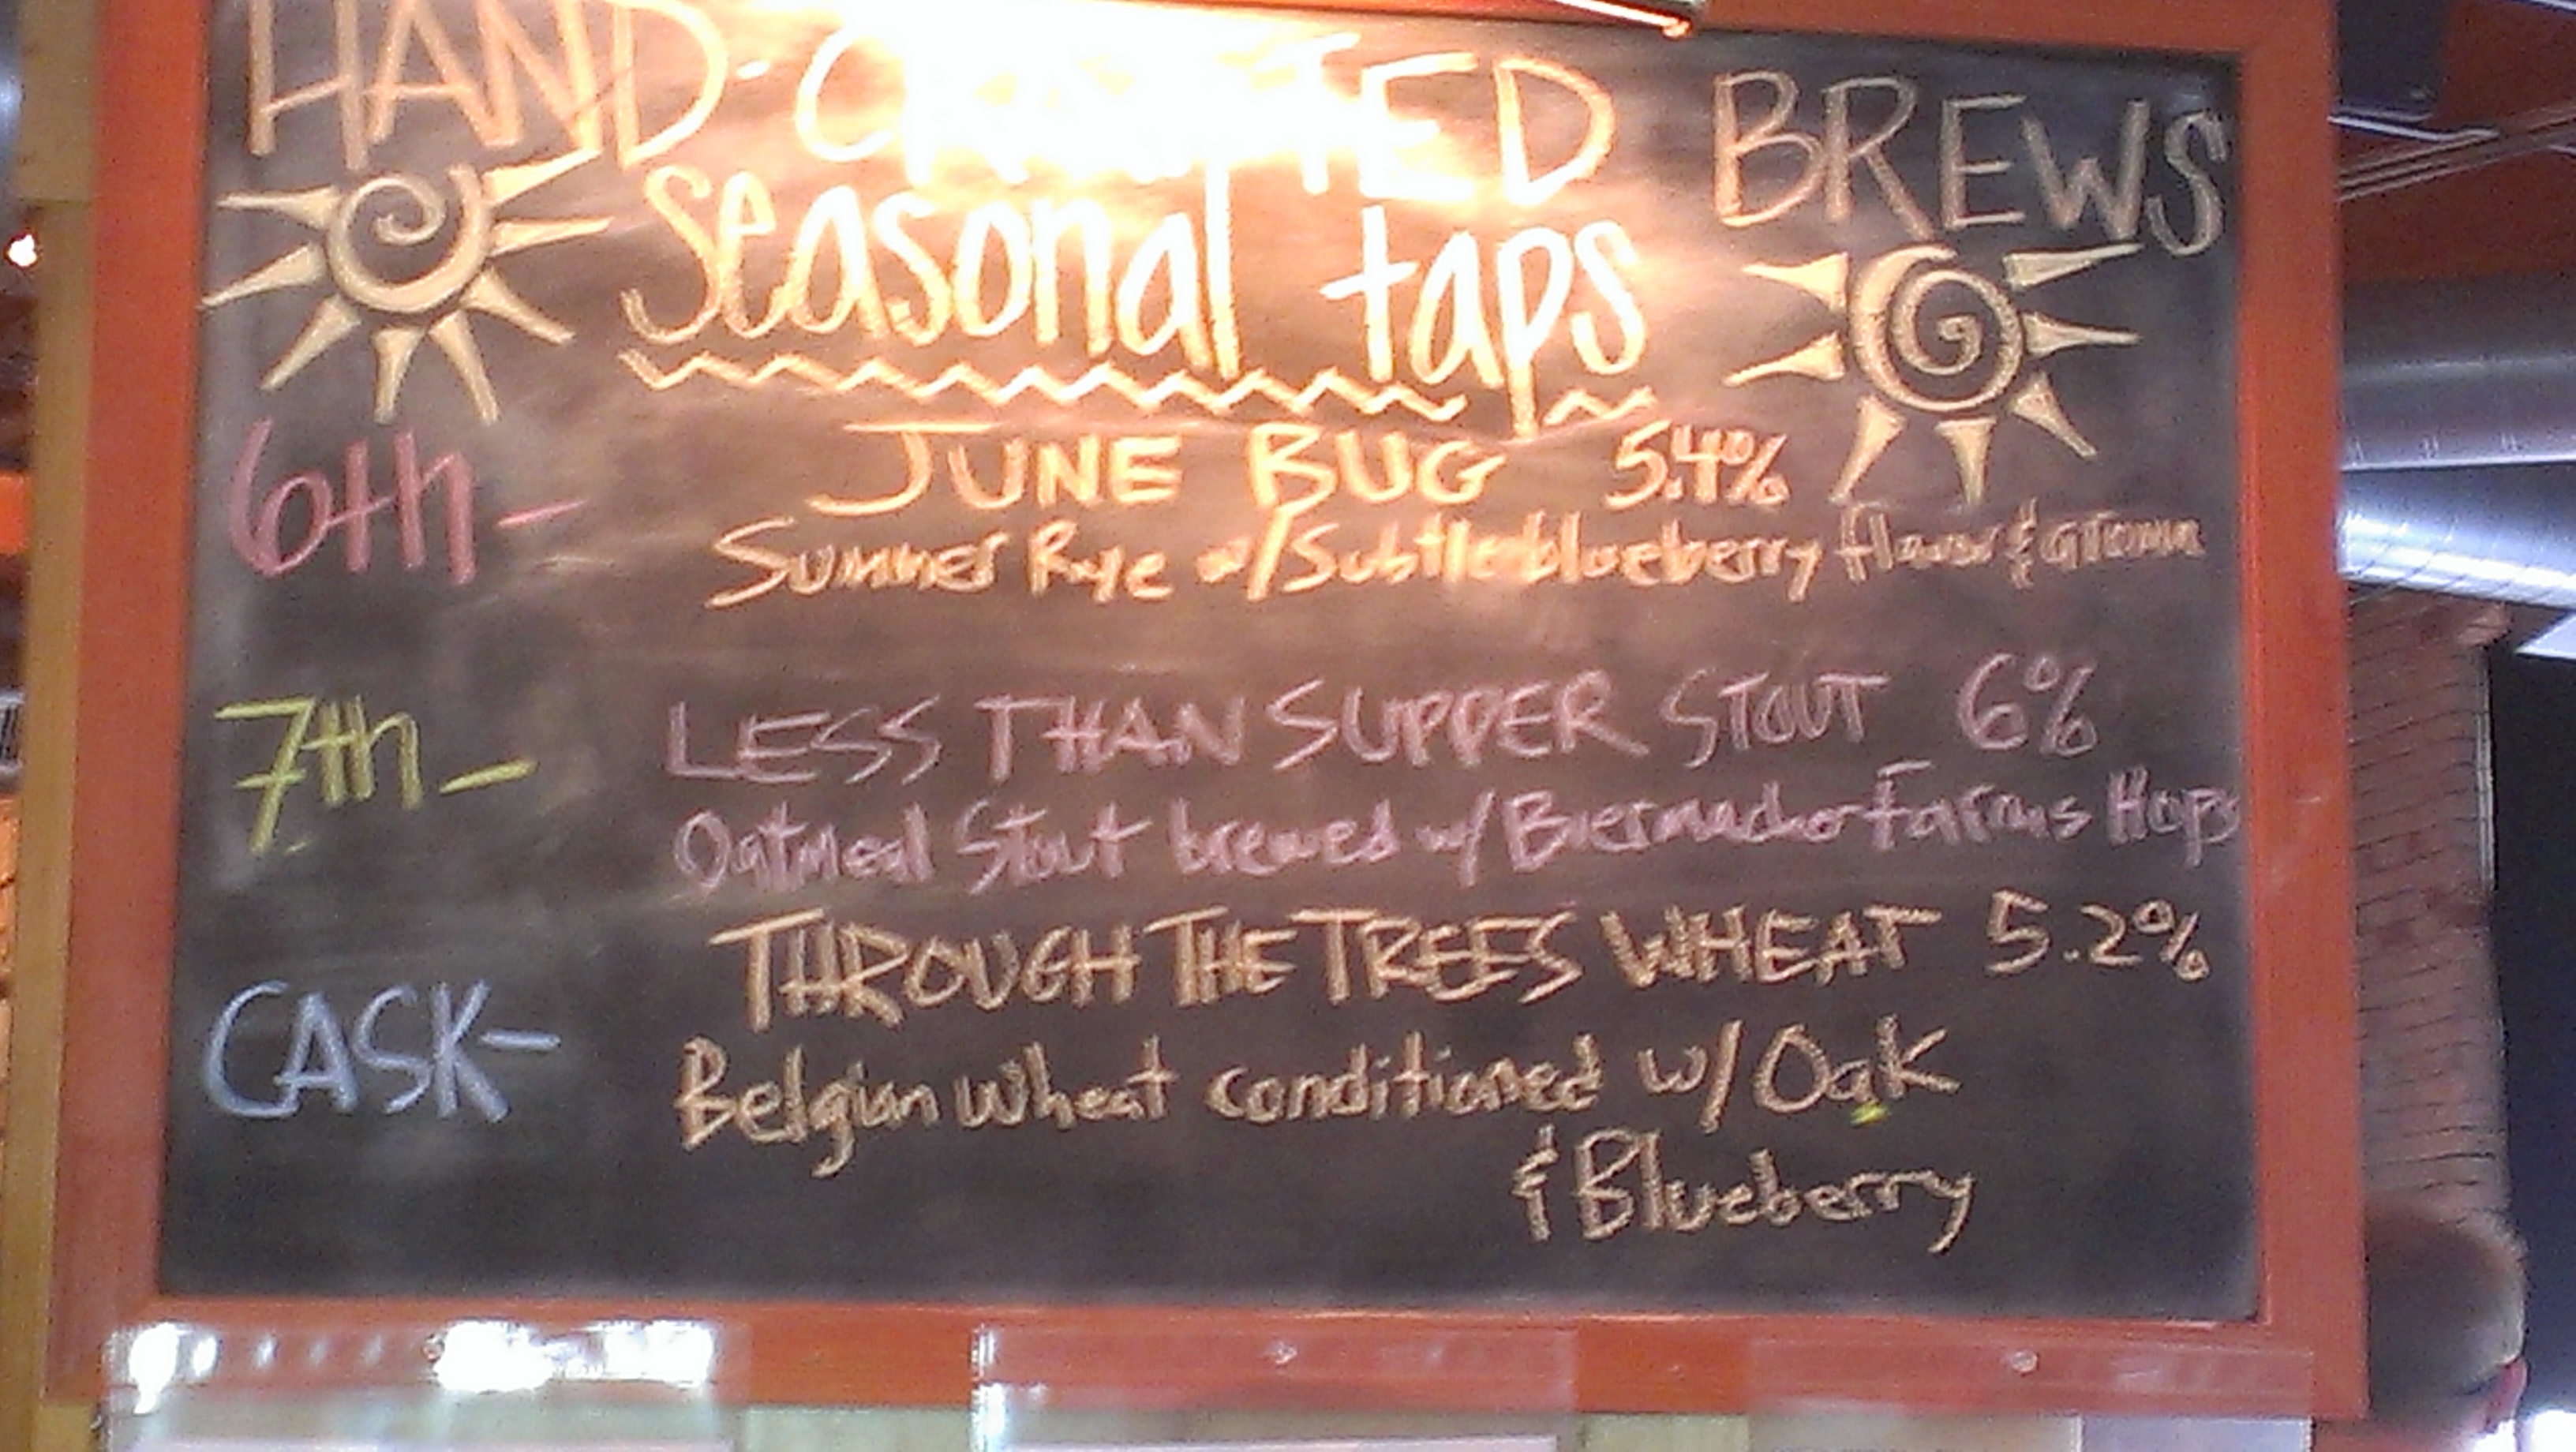 HAND-CRAFTED BREWS
seasonal taps
6th - JUNE BUG 5.4%
Summer Rye w/ Subtle blueberry flavor & aroma
7th - LESS THAN SUPPER STOUT 6%
Oatmeal Stout brewed w/ Farms Hops
THROUGH THE TREES WHEAT 5.2%
CASK-
Belgian Wheat conditioned w/ Oak
& Blueberry